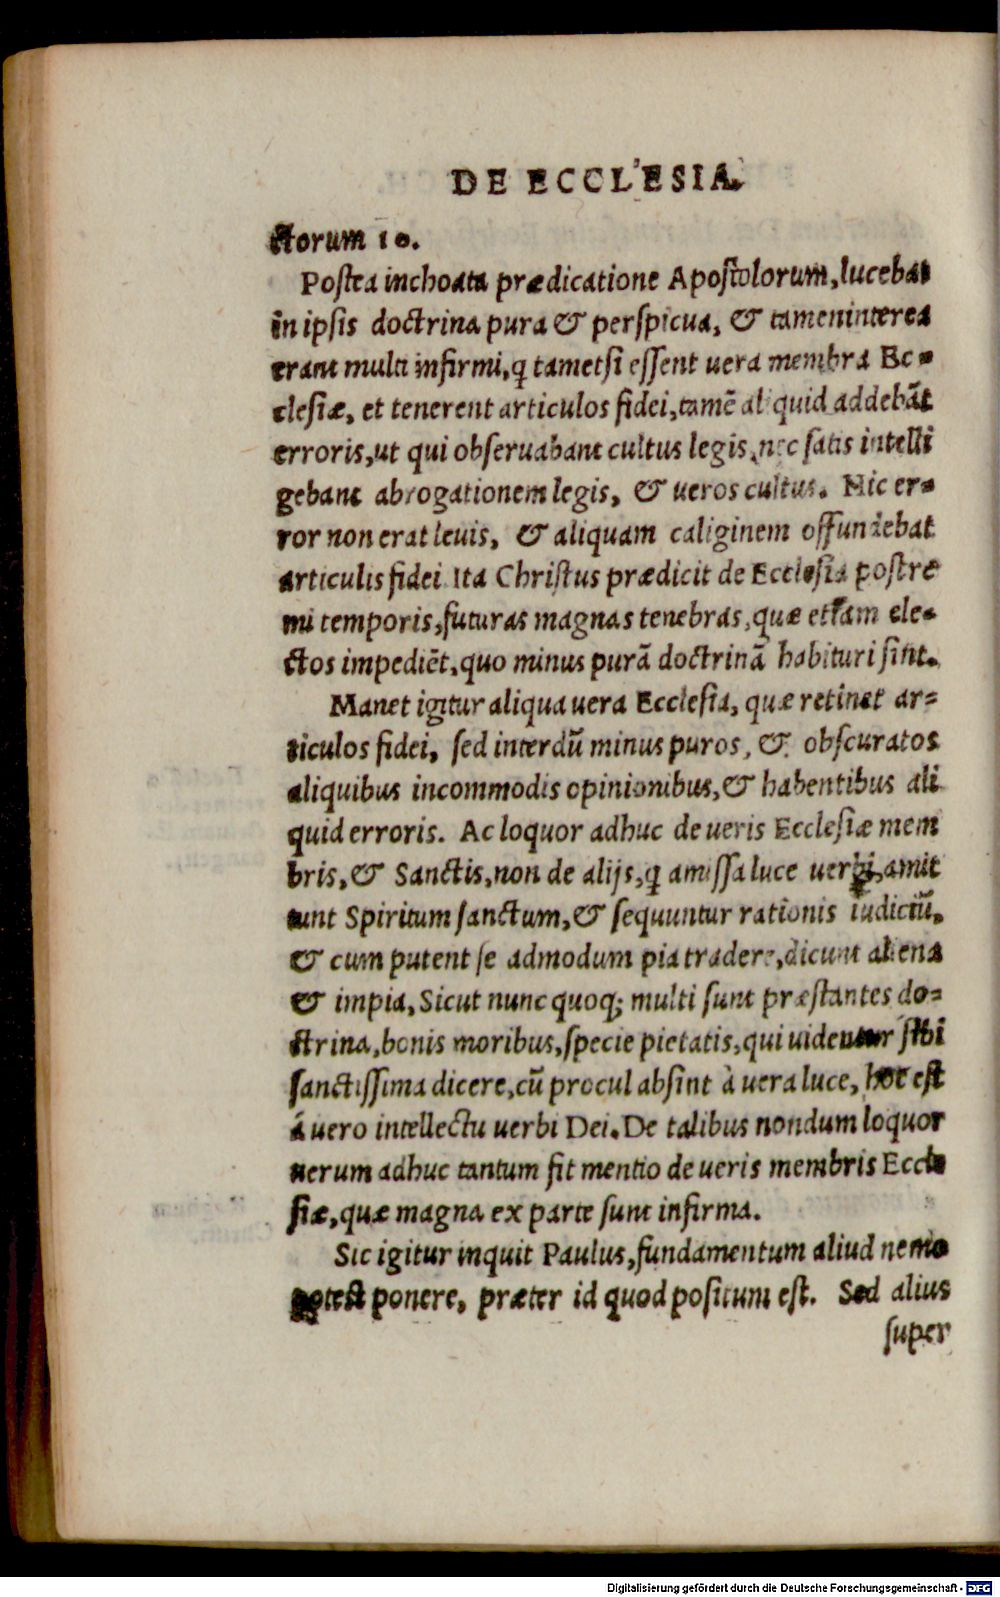 DE ECCLESIA.
ctorum 10.
Postea inchoata prædicatione Apostolorum, lucebat
in ipsis doctrina pura & perspicua, & tamen interea
erant multi infirmi, ꝗ tametsi essent uera membra Ec-
clesiæ, et tenerent articulos fidei, tamē aliquid addebāt
erroris, ut qui obseruabant cultus legis, nec satis intelli
gebant abrogationem legis, & ueros cultus. Hic er-
ror non erat leuis, & aliquam caliginem offundebat
articulis fidei Ita Christus prædicit de Ecclesia postre
mi temporis, futuras magnas tenebras, quæ etiam ele-
ctos impediēt, quo minus purā doctrinā habituri sint.
Manet igitur aliqua uera Ecclesia, quæ retinet ar-
ticulos fidei, sed interdū minus puros, & obscuratos
aliquibus incommodis opinionibus, & habentibus ali
quid erroris. Ac loquor adhuc de ueris Ecclesiæ mem
bris, & Sanctis, non de alijs, ꝗ amissa luce uerbi, amit
tunt Spiritum sanctum, & sequuntur rationis iudiciū,
& cum putent se admodum pia tradere, dicunt aliena
& impia, Sicut nunc quoq; multi sunt præstantes do-
ctrina, bonis moribus, specie pietatis, qui uidentur sibi
sanctissima dicere, cū procul absint à uera luce, hoc est
á uero intellectu uerbi Dei. De talibus nondum loquor
uerum adhuc tantum fit mentio de ueris membris Eccle
siæ, quæ magna ex parte sunt infirma.
Sic igitur inquit Paulus, fundamentum aliud nemo
potest ponere, præter id quod positum est. Sed alius
super
Digitalisierung gefördert durch die Deutsche Forschungsgemeinschaft - DFG